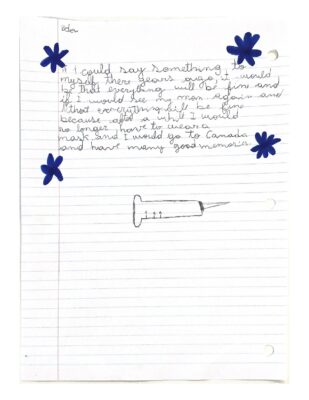 If I could say something to
myself ther years ago it would
be that everything will be fine and
if I would see my mom again and
that everything will be fine
because after a while I would
no longer have to wear a
mask and I would go to Canada
and have many good memories